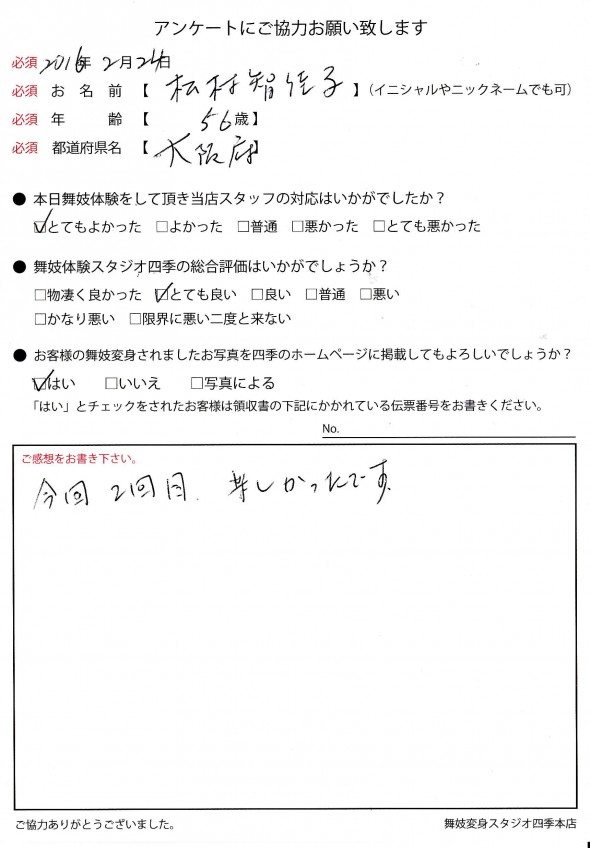 アンケートにご協力お願い致します
必須 2016年 2月 24日
必須 お 名 前 【 松村智佳子 】（イニシャルやニックネームでも可）
必須 年 齢 【 56歳】
必須 都道府県名 【 大阪府】
● 本日舞妓体験をして頂き当店スタッフの対応はいかがでしたか？
☑とてもよかった □よかった □普通 □悪かった □とても悪かった
● 舞妓体験スタジオ四季の総合評価はいかがでしょうか？
□物凄く良かった ☑とても良い □良い □普通 □悪い
□かなり悪い □限界に悪い二度と来ない
● お客様の舞妓変身されましたお写真を四季のホームページに掲載してもよろしいでしょうか？
☑はい □いいえ □写真による
「はい」とチェックをされたお客様は領収書の下記にかかれている伝票番号をお書きください。
No.
ご感想をお書き下さい。
今回 2回目、楽しかったです。
ご協力ありがとうございました。
舞妓変身スタジオ四季本店